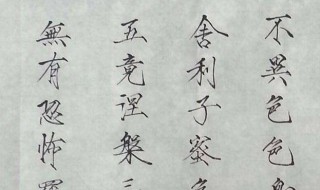 不異色色
舍利子蜜
五竟涅槃三
無有恐怖